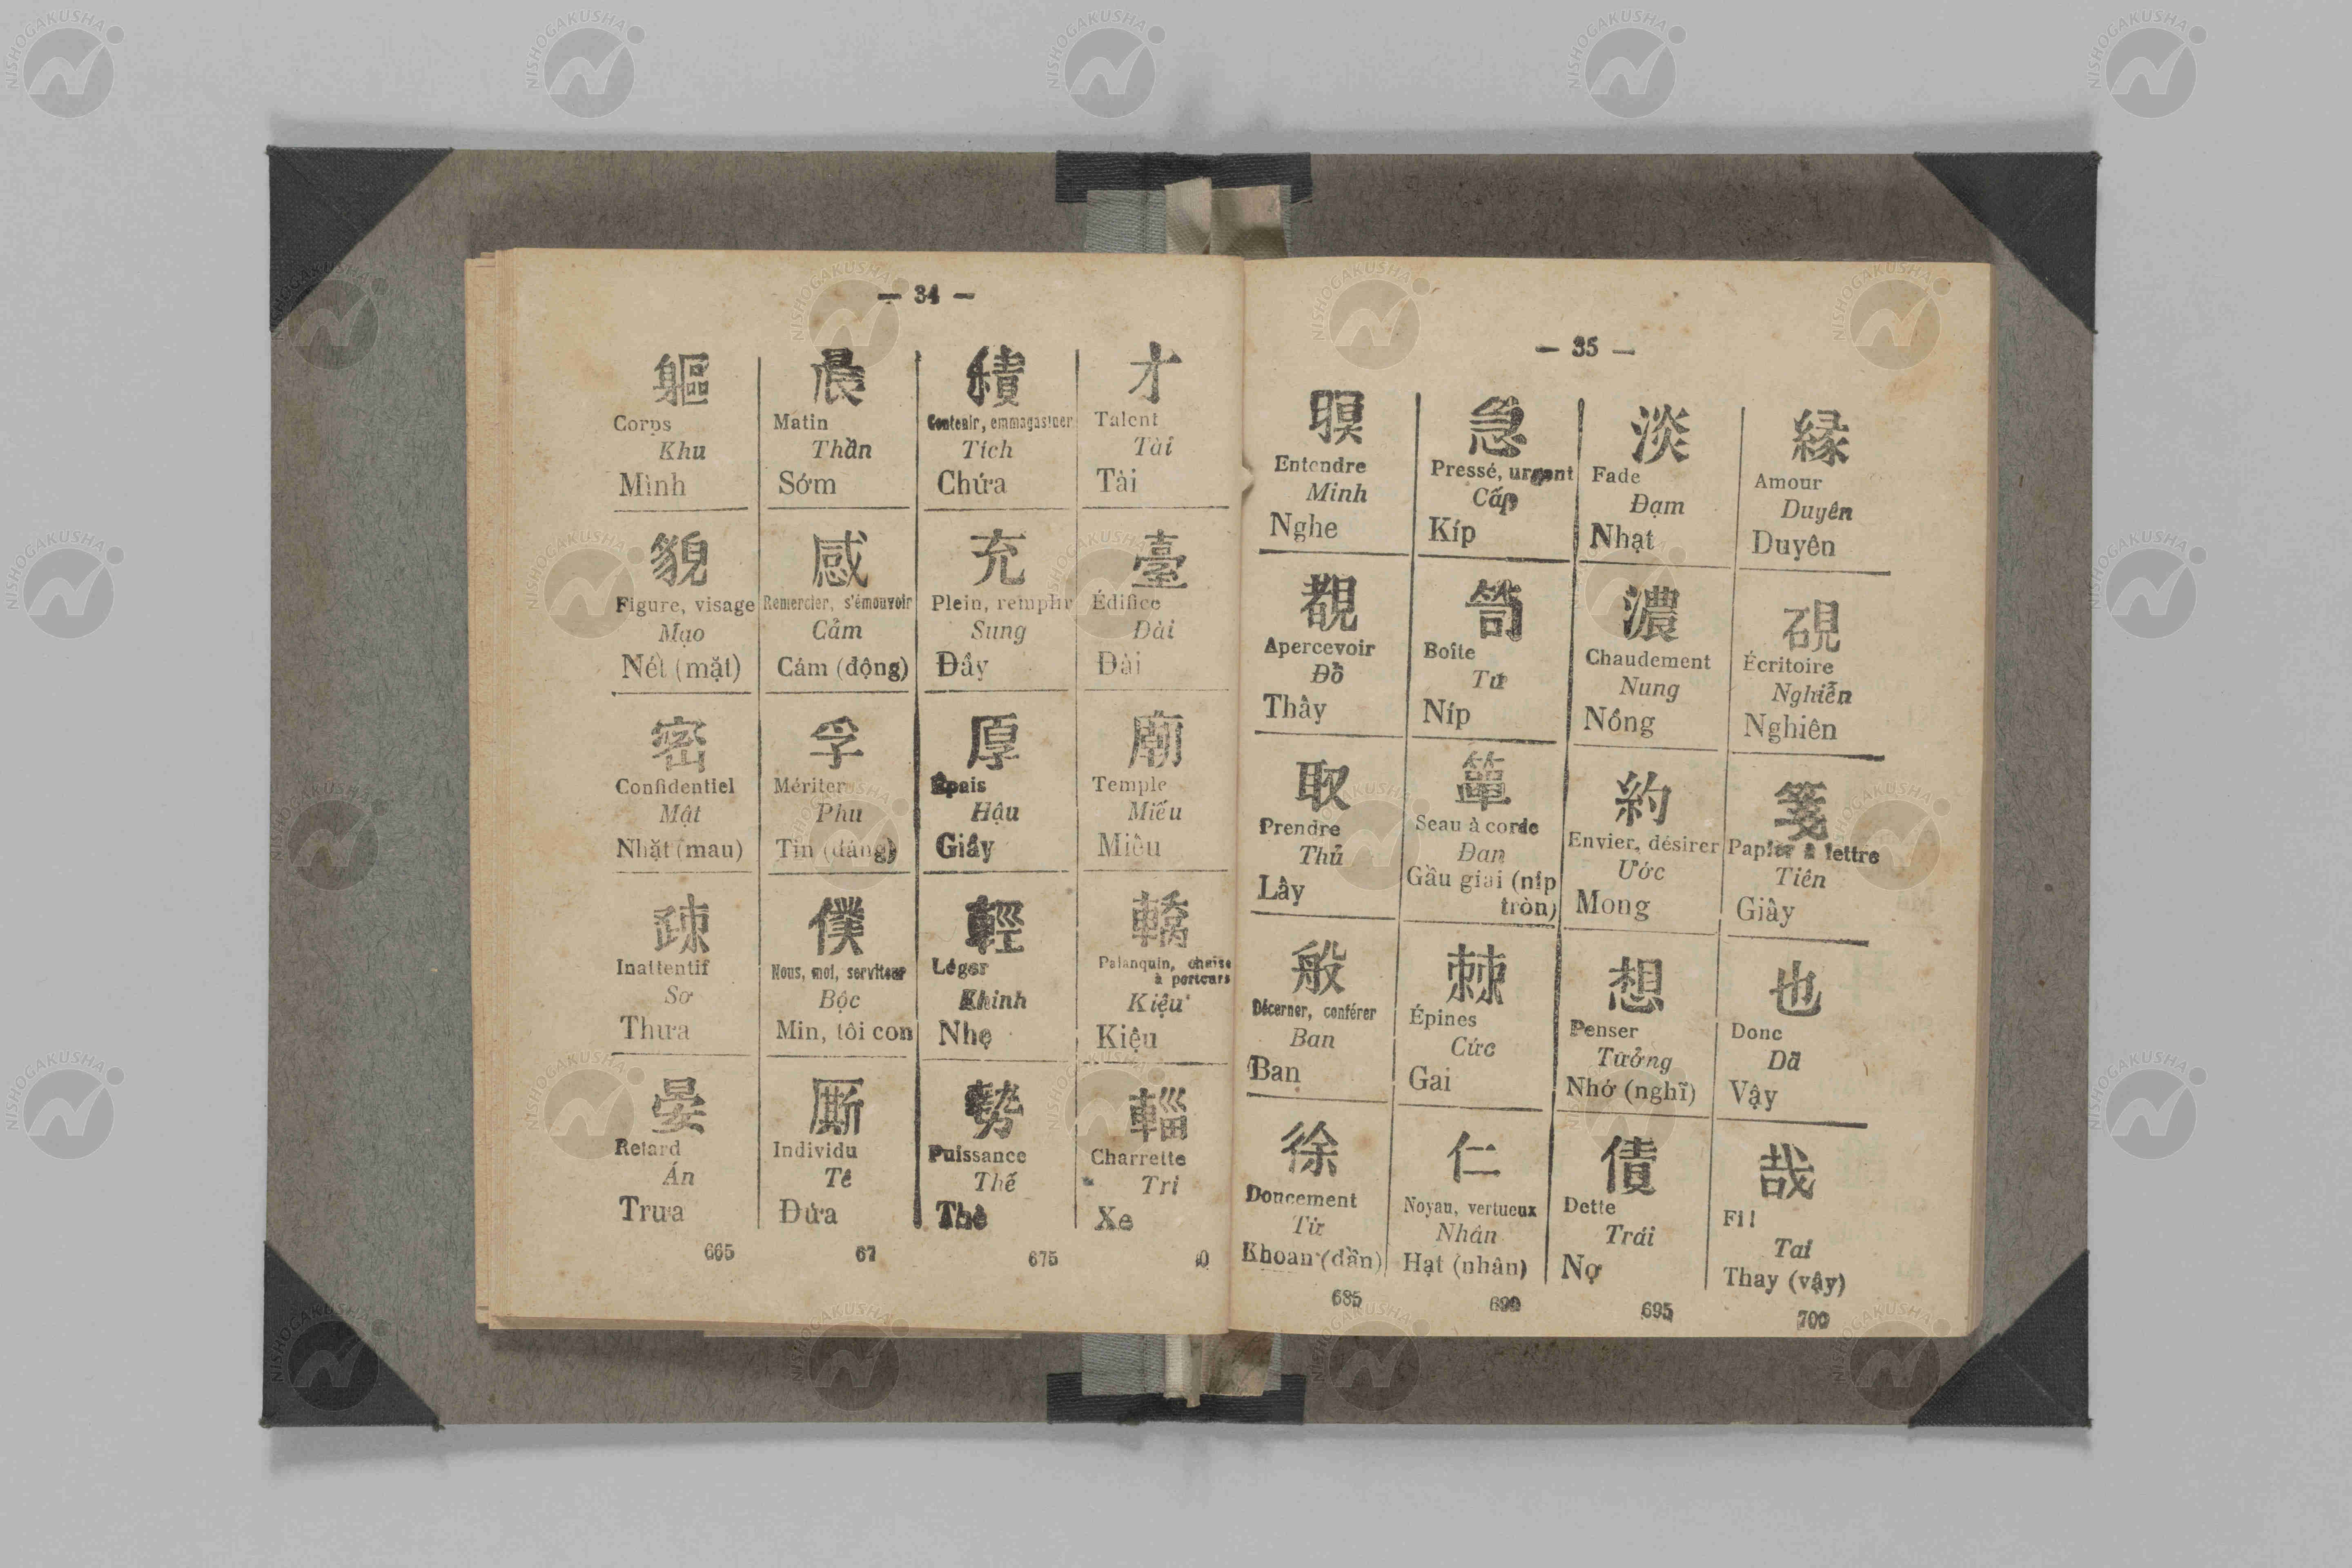 — 34 —
軀
Corps
Khu
Mình
貌
Figure, visage
Mạo
Nét (mặt)
密
Confidentiel
Mật
Nhặt (mau)
疎
Inattentif
Sơ
Thưa
晏
Retard
Án
Trưa
665
晨
Matin
Thần
Sớm
感
Remercier, s'émouvoir
Cảm
Cám (động)
孚
Mériter
Phu
Tin (dáng)
僕
Nous, moi, serviteur
Bộc
Min, tôi con
厮
Individu
Tê
Đứa
67
積
Contenir, emmagasiner
Tích
Chứa
充
Plein, remplir
Sung
Đầy
厚
Épais
Hậu
Giầy
輕
Léger
Khinh
Nhẹ
勢
Puissance
Thế
Thế
675
才
Talent
Tài
Tài
臺
Édifice
Đài
Đài
廟
Temple
Miếu
Miễu
轎
Palanquin, chaise
à porteurs
Kiệu
Kiệu
輜
Charrette
Tri
Xe
0
— 35 —
瞑
Entendre
Minh
Nghe
覩
Apercevoir
Đồ
Thấy
取
Prendre
Thủ
Lấy
般
Décerner, conférer
Ban
Ban
徐
Doucement
Từ
Khoan (dần)
685
急
Pressé, urgent
Cấp
Kíp
笥
Boîte
Tứ
Níp
簞
Seau à corde
Đan
Gầu giai (níp
tròn)
棘
Épines
Cức
Gai
仁
Noyau, vertueux
Nhân
Hạt (nhân)
690
淡
Fade
Đạm
Nhạt
濃
Chaudement
Nung
Nồng
約
Envier, désirer
Ước
Mong
想
Penser
Tưởng
Nhớ (nghĩ)
債
Dette
Trái
Nợ
695
緣
Amour
Duyên
Duyên
硯
Écritoire
Nghiễn
Nghiên
箋
Papier à lettre
Tiên
Giấy
也
Donc
Dã
Vậy
哉
Fi!
Tai
Thay (vậy)
700